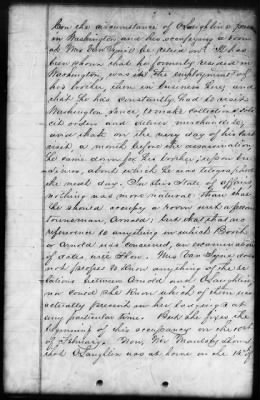 Can the circumstance of O'Laughlin's presence
in Washington and his occupying a room
at Mrs Van Tyne's be relied on? It has
been shown that he formerly resided in
Washington, was in the employment of
his brother, then in business here, and
that he has constantly had to visit
Washington since, to make collections, so-
licit orders and deliver merchandise;
and that on the very day of his last
visit, a month before the assassination,
he came down for his brother, upon bu-
siness, about which he was telegraphed
the next day. In this state of affairs
nothing was more natural than that
he should occupy a room with a
townsman, Arnold; but that has no
reference to anything in which Booth
or Arnold was concerned, an examination
of dates will show. Mrs Van Tyne does
not profess to know anything of the re-
lations between Arnold and O'Laughlin,
nor could she know which of them was
actually present in her lodgings at
any particular time. But she fixes the
beginning of his occupancy on the
of February. Now, Mr Maulsby shows
that O'Laughlin was at home on the 18th of